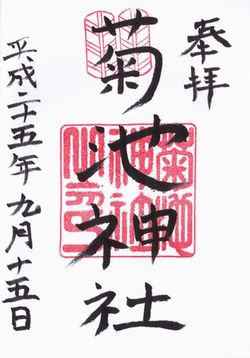 奉拝
菊池神社
平成二十五年九月十五日